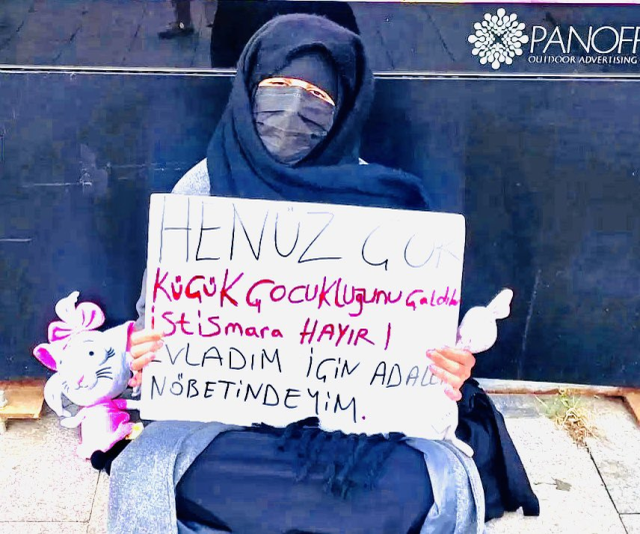 PANOFF
OUTDOOR ADVERTISING
HENÜZ ÇOK
KÜÇÜK ÇOCUKLUĞUNU Çaldılar
İSTİSMARA HAYIR!
EVLADIM İÇİN ADALET
NÖBETİNDEYİM.